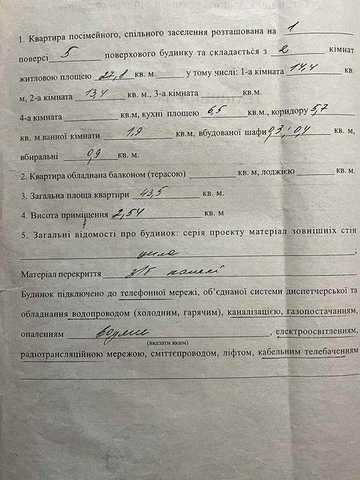 1. Квартира посімейного, спільного заселення розташована на 1
поверсі 5 поверхового будинку та складається з 2 кімнат
житловою площею 27,8 кв. м. у тому числі: 1-а кімната 14,4 кв.
м, 2-а кімната 13,4 кв. м., 3-а кімната кв.м.
4-а кімната кв.м, кухні площею 6,5 кв.м., коридору 5,7
кв. м.ванної кімнати 1,9 кв. м, вбудованої шафи 0,4 кв. м,
вбиральні 0,9 кв. м.
2. Квартира обладнана балконом (терасою) кв. м, лоджією кв. м.
3. Загальна площа квартири 43,5 кв. м.
4. Висота приміщення 2,54 кв. м
5. Загальні відомості про будинок: серія проекту матеріал зовнішніх стін
цегла
Матеріал перекриття з/б панелі
Будинок підключено до телефонної мережі, об'єднаної системи диспетчерської та
обладнання водопроводом (холодним, гарячим), каналізацією, газопостачанням,
опаленням водяне , електроосвітленням,
(вказати яким)
радіотрансляційною мережою, сміттєпроводом, ліфтом, кабельним телебаченням